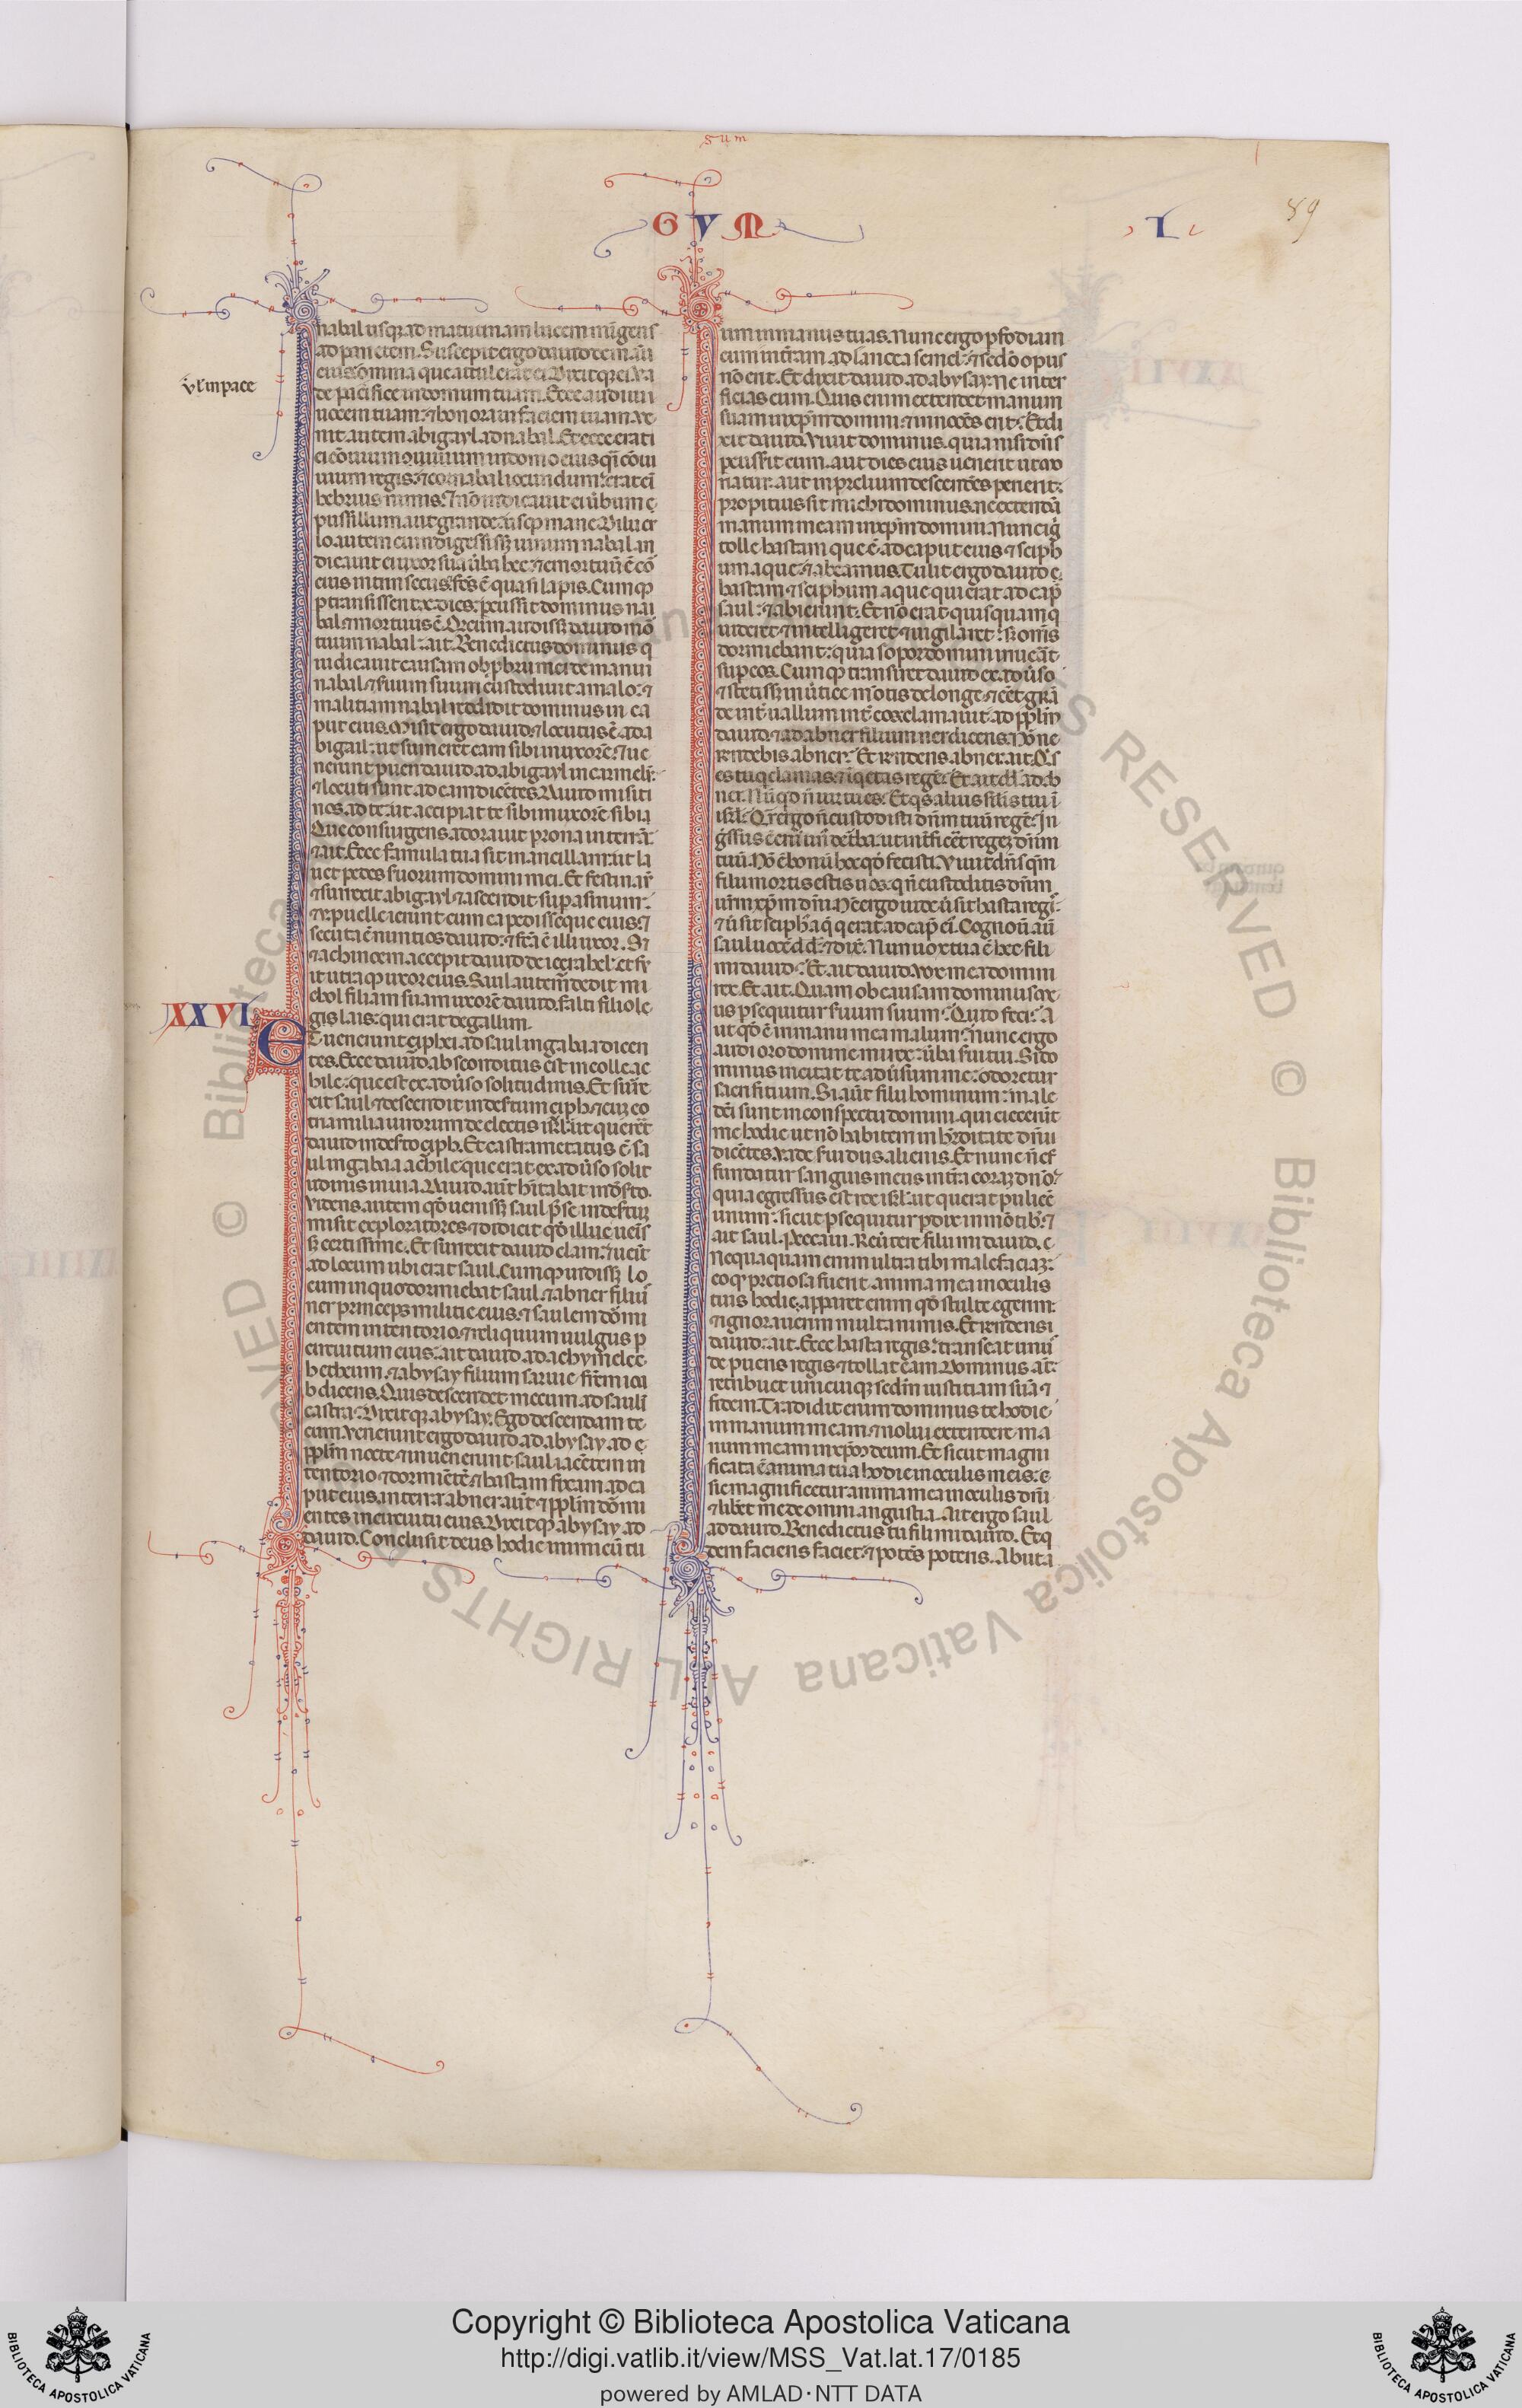 sum
GVM
I
89
nabal usq; ad matutinam lucem mīgens
ad parietem. Suscepit ergo dauid de manu
eius omnia que attulerat ei. Dixitq; ei. Va
ꝉ in pace
de pacifice in domum tuam. Ecce audiui
uocem tuam. ⁊ honoraui faciem tuam. Ve
nit autem abigayl ad nabal. Et ecce erat
ei cōuiuium in domo eius q̄i cōui
uium regis. ⁊ cor nabal iocundum. erat eī
hebrius nimis. ⁊ nō indicauit ei ūbum
pusillum aut grande usq; mane. Diluc
lo autem cum digessiss; uinum nabal. in
dicauit ei uxor sua ūba hec. ⁊ emortuū ē co
eius intrinsecus. ⁊ fcs̄ ē quasi lapis. Cumq;
ptransissent .x. dies. pcussit dominus na
bal ⁊ mortuus ē. Qd̄ cum audiss; dauid mō
tuum nabal. ait. Benedictus dominus q
iudicauit causam obp̄brii mei de manu
nabal. ⁊ seruum suum custodiuit a malo. ⁊
malitiam nabal reddidit dominus in ca
put eius. Misit ergo dauid. ⁊ locutus ē ad a
bigail. ut sumeret eam sibi in uxorē. ⁊ ue
nerunt pueri dauid ad abigayl in carmeli.
⁊ locuti sunt ad eam dicētes. Dauid misit
nos ad te. ut accipiat te sibi in uxorē
Que consurgens. adorauit prona in terrā.
⁊ ait. Ecce famula tua sit in ancillam. ut la
uet pedes seruorum domini mei. Et festinau̅
⁊ surrexit abigayl. ⁊ ascendit sup asinum.
⁊ .v. puelle ierunt cum ea pedisseque eius. ⁊
secuta ē nuntios dauid. ⁊ fca ē illi uxor. S;
⁊ achinoem accepit dauid de iezrahel. et fu
it utraq; uxor eius. Saul autem dedit mi
chol filiam suam uxorē dauid. falti filio
lais. qui erat de gallim.
XXVI
ET uenerunt ciphei ad saul in gabaa dicen
tes. Ecce dauid absconditus est in colle ac
hile. que est ex aduso solitudinis. Et surre
xit saul ⁊ descendit in desertum ciph. ⁊ cū eo
tria milia uirorum de electis isrl. ut quereret
dauid in deserto ciph. Et castrametatus ē sa
ul in gabaa achile. que erat ex aduso solit
udinis in uia. Dauid aut̄ hītabat in dōsto.
Videns autem qd̄ ueniss; saul p̄ se in desertū
misit exploratores. ⁊ didicit qd̄ illuc uenis
s; certissime. Et surrexit dauid clam. ⁊ uenit
ad locum ubi erat saul. Cumq; uidiss; lo
cum in quo dormiebat saul. ⁊ abner filius
ner princeps militie eius. ⁊ saulem dōmi
entem in tentorio. ⁊ reliquum uulgus p
circuitum eius. ait dauid ad achymelec
hetheum. ⁊ abysay filium saruie. fr̄em ioa
b dicens. Quis descendet mecum ad saul
castra. Dixitq; abysay. Ego descendam te
cum. Venerunt ergo dauid ad abysay ad
pplm nocte. ⁊ inuenerunt saul iacētem in
tentorio ⁊ dormiētē. ⁊ hastam fixam ad ca
put eius in terra. abner aut̄ ⁊ pplm dōmi
entes in circuitu eius. Dixitq; abysay ad
dauid. Conclusit deus hodie inimicū tu
um in manus tuas. Nunc ergo pfodiam
eum intram. ad lancea semel. ⁊ sedō opus
nō erit. Et dixit dauid ad abysay. ne inter
ficias eum. Quis enim extendet manum
suam in xp̄m domini. ⁊ innocēs erit? Et di
xit dauid. Viuit dominus. quia nisi dn̄s
pcusserit eum. aut dies eius uenerit ut mo
riatur. aut in prelium descendēs perierit.
propitius sit michi dominus. ne extendā
manum meam in xp̄m domini. Nunc ig̅
tolle hastam que ē ad caput eius. ⁊ sciph
um aque. ⁊ abeamus. Tulit ergo dauid
hastam. ⁊ sciphum aque qui erat ad cap̄
saul. ⁊ abierunt. Et nō erat quisquam q
uideret ⁊ intelligeret ⁊ uigilaret. s; om̄s
dormiebant. quia sopor domini irruerat
sup eos. Cumq; transiret dauid ex aduso
⁊ stetiss; in ūtice mōtis de longe. ⁊ eēt grā
de int̄uallum int̄ eos. clamauit ad pplm
dauid ⁊ ad abner filium ner dicens. Nō ne
rn̄debis abner? Et rn̄dens abner. ait. Q̄s
es tu q clamas. ⁊ īqetas regē? Et ait dd̄ ad ab
ner. Nūqd n̄ uir tu es? Et q̄s alius silis tui ī
isrl? Qr̄e ergo n̄ custodisti dn̄m tuū regē? In
gssus ē enī un̄ de tba. ut int̄ficeret regē dn̄m
tuū. Nō ē bonū hoc qd̄ fecisti. Viuit dn̄s qm̄
filii mortis estis uos. q n̄ custoditis dn̄m
ur̄m xp̄m dn̄i. Nc̄ ergo uide ū sit hasta regi.
⁊ ū sit sciph̄ aq̄ q erat ad cap̄ ei. Cognou̅ au̅
saul uocē dd̄. ⁊ dix̄. Num uox tua ē hec fili
mi dauid? Et ait dauid. Vox mea domine
rex. Et ait. Quam ob causam dominus me
us psequitur seruum suum? Quid feci? A
ut qd̄ ē in manu mea malum? Nunc ergo
audi oro domine mi rex. ūba serui tui. Si do
minus incitat te aduersum me. odoretur
sacrificium. Si aut̄ filii hominum. male
dci sunt in conspectu domini. qui eiecerunt
me hodie ut nō habitem in hr̄editate dn̄i
dicētes. Vade serui diis alienis. Et nunc n̄ ef
fundatur sanguis meus in t̄ra corā dn̄o.
quia egressus est rex isrl. ut querat pulicē
unum. sicut psequitur pdix in mōtib;. ⁊
ait saul. Peccaui. Reūtere fili mi dauid.
nequaquam enim ultra tibi male faciam.
eoq; pretiosa fuerit anima mea in oculis
tuis hodie. apparet enim qd̄ stulte egerim.
⁊ ignorauerim multa nimis. Et rn̄dens
dauid. ait. Ecce hasta regis. transeat unus
de pueris regis ⁊ tollat eam. Dominus aut̄
retribuet unicuiq; sedm iustitiam suā ⁊
fidem. Tradidit enim dominus te hodie
in manum meam. ⁊ nolui extendere ma
num meam in xp̄m dei. Et sicut magni
ficata ē anima tua hodie in oculis meis.
sic magnificetur anima mea in oculis dn̄i
⁊ libet me de omni angustia. Ait ergo saul
ad dauid. Benedictus tu fili mi dauid. Et q
dem faciens facies. ⁊ potēs poteris. Abiit a
Copyright © Biblioteca Apostolica Vaticana
http://digi.vatlib.it/view/MSS_Vat.lat.17/0185
powered by AMLAD·NTT DATA
BIBLIOTECA APOSTOLICA VATICANA
BIBLIOTECA APOSTOLICA VATICANA